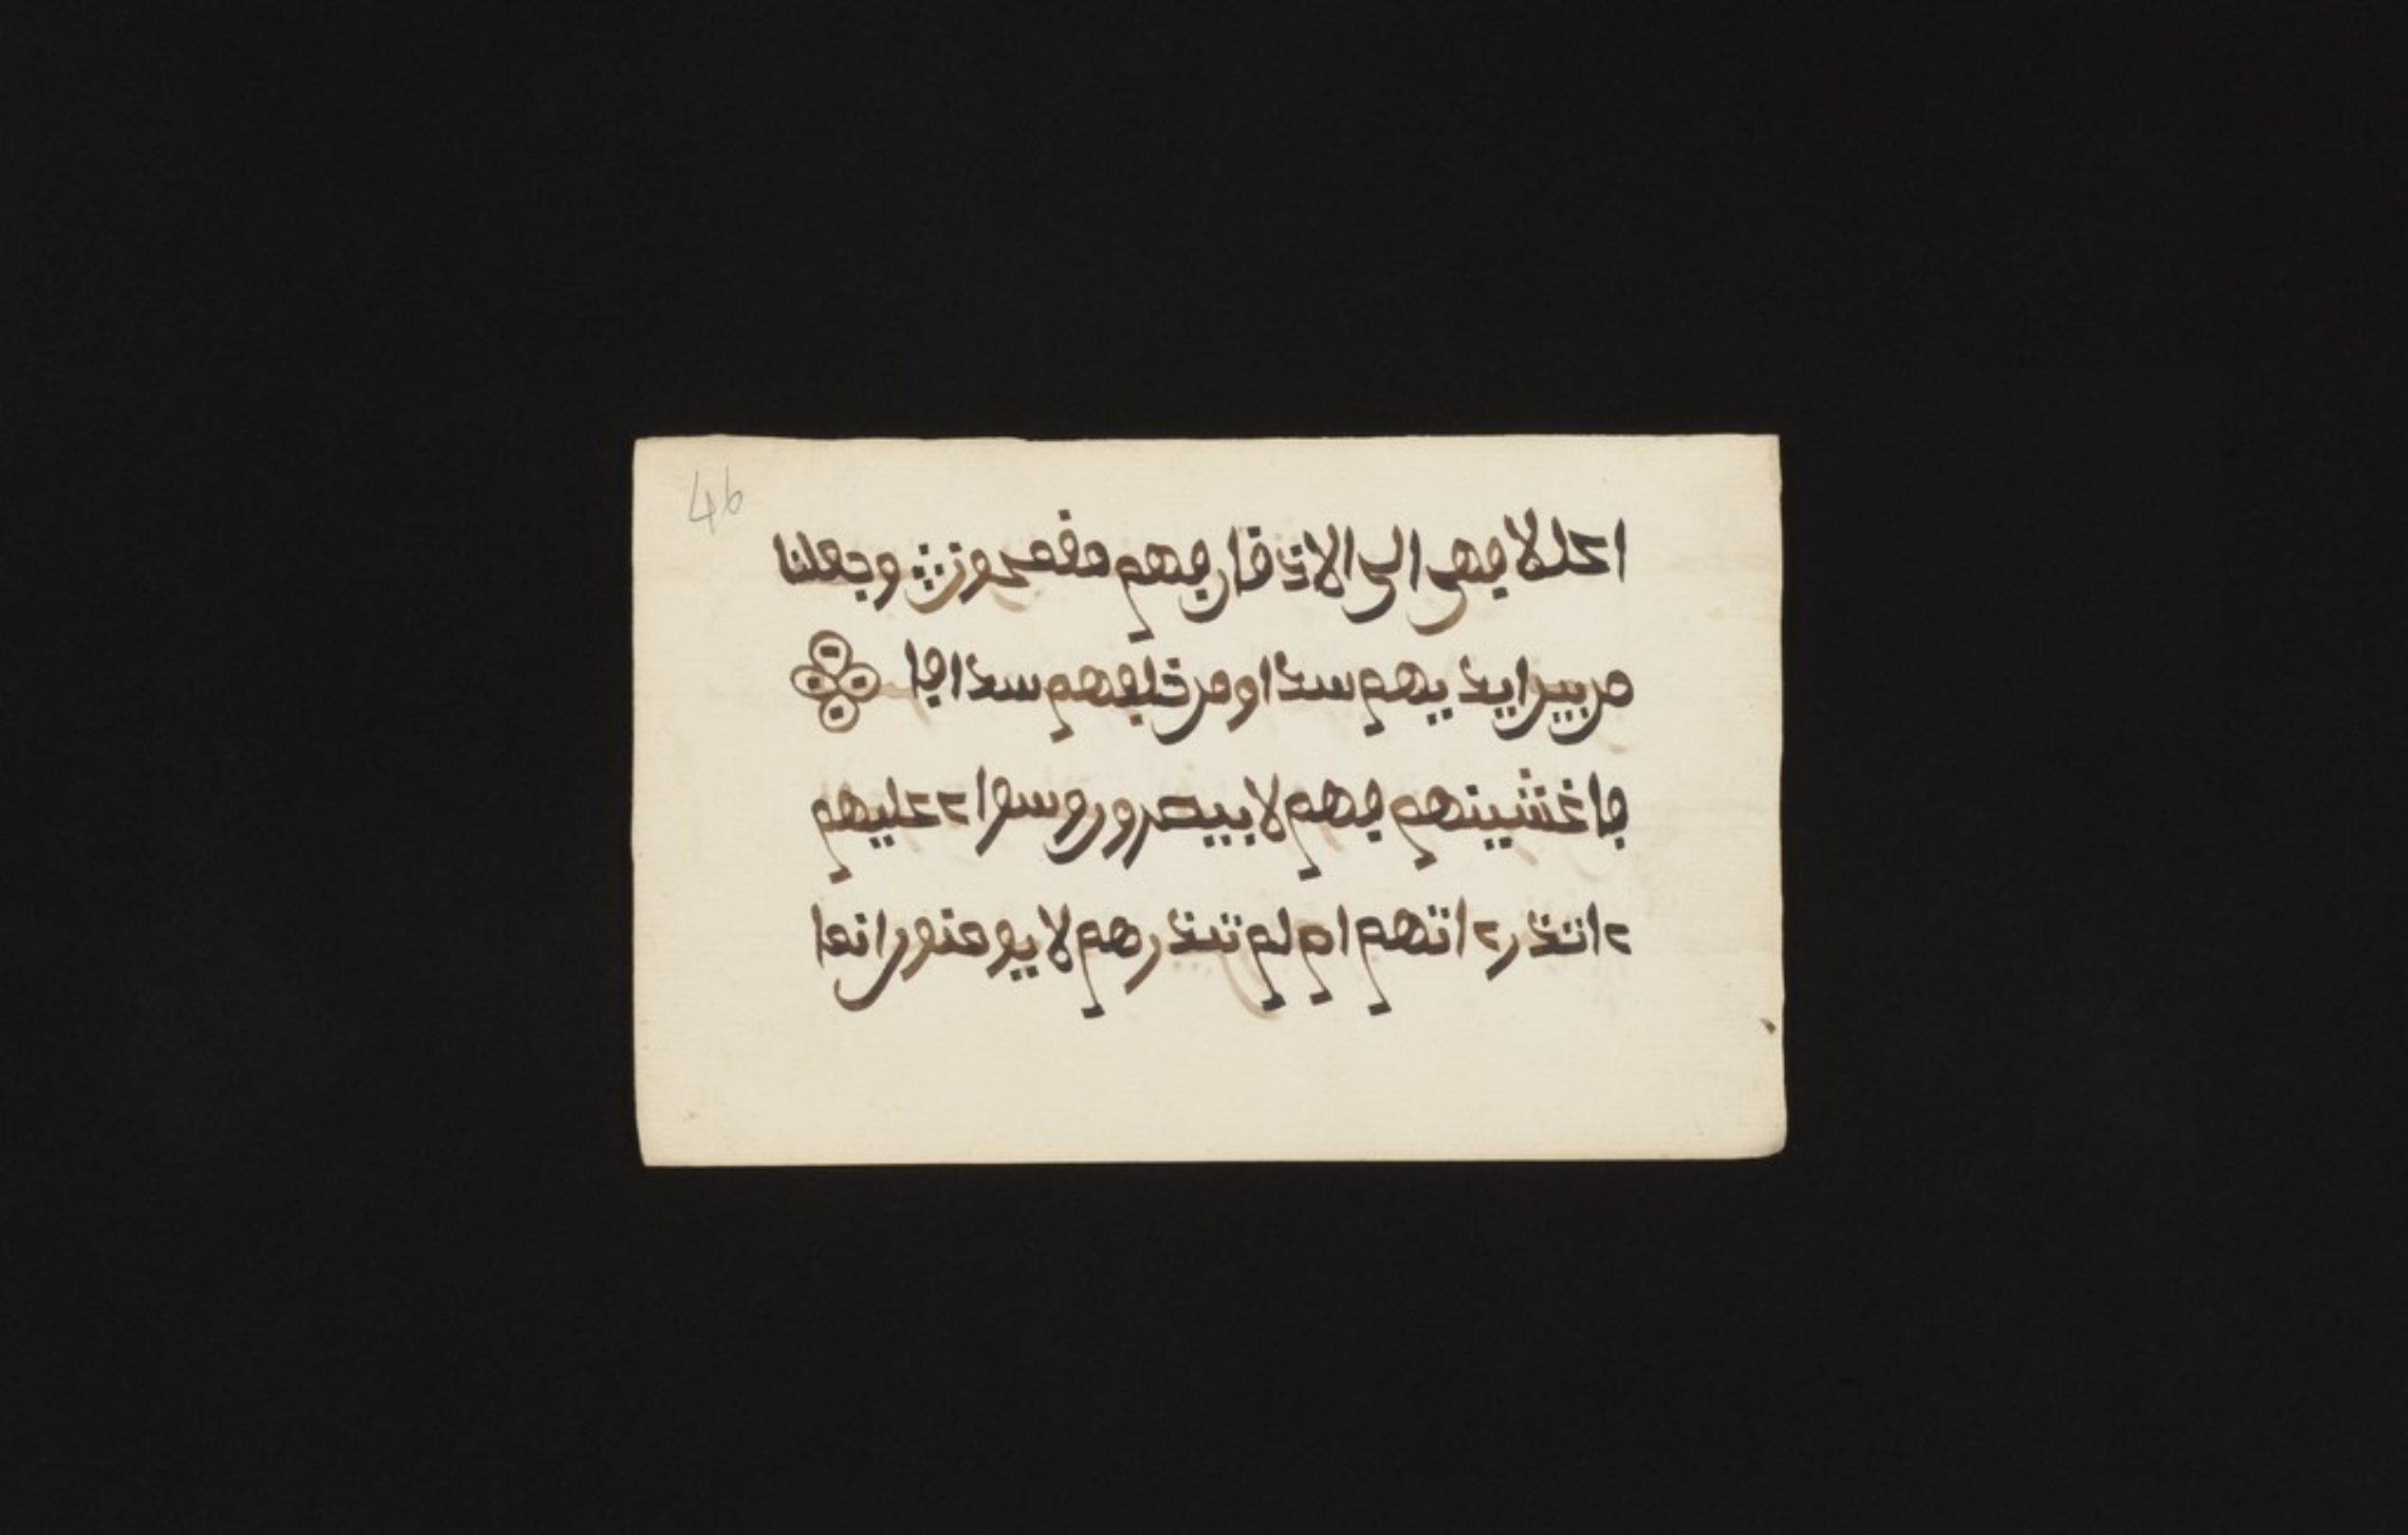 46
اعللا فهى الى الاذقان فهم مقمحون وجعلنا
من بين ايديهم سدا ومن خلفهم سدا فا
فاغشينهم فهم لا يبصرون وسواء عليهم
ءانذرءاتهم ام لم تنذرهم لا يومنون انما